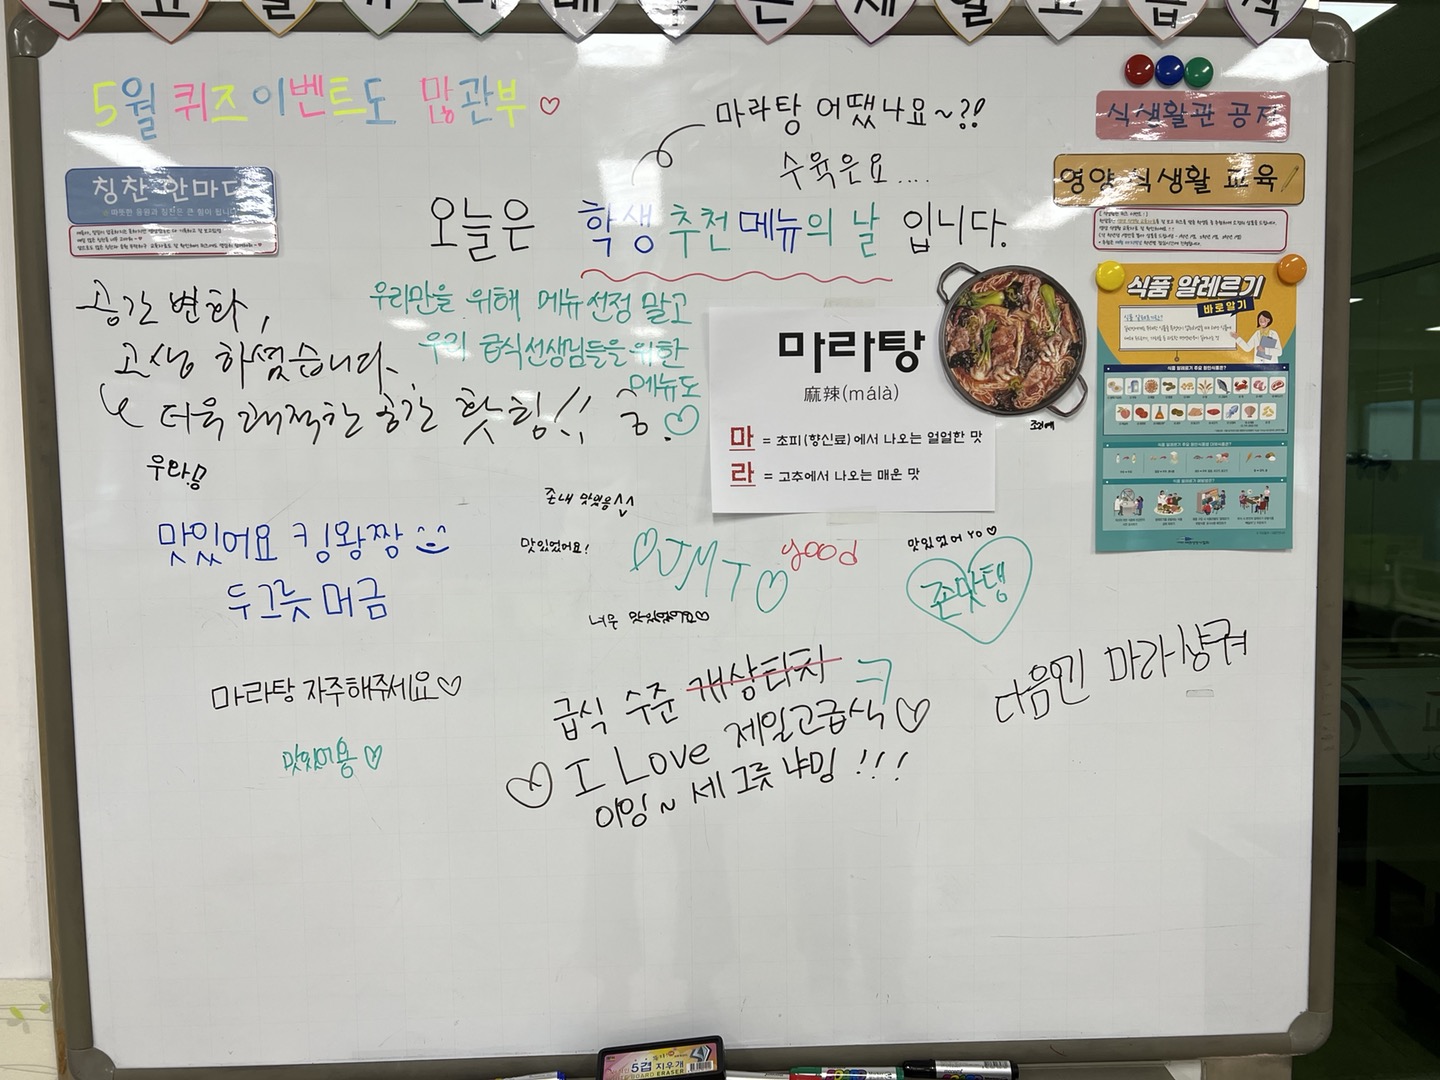 5월 퀴즈이벤트도 많관부♡
마라탕 어땠나요~?!
수육은요....
오늘은 학생 추천 메뉴의 날 입니다.
식생활관 공지
영양 식생활 교육
칭찬 한마디
공간 변화,
고생 하셨습니다.
더욱 쾌적한 공간 핫힝!!
우와!!
우리만을 위해 메뉴선정 말고
우리 급식선생님들을 위한
메뉴도
♡
마라탕
麻辣(málà)
마 = 초피(향신료)에서 나오는 얼얼한 맛
라 = 고추에서 나오는 매운 맛
식품 알레르기
바로알기
식품 알레르기 주요 원인식품은?
맛있어요 킹왕짱
두그릇 머금
존내 맛있음^^
맛있었어요!
♡JMT♡
good
너무 맛있었어요♡
맛있었어 YO♡
존맛탱
마라탕 자주해주세요♡
맛있어용♡
급식 수준 개상타치
ㅋ
♡ I Love 제일고급식♡
이잉~ 세 그릇 냐밍 !!!
다음엔 마라샹궈
5겹 지우개
BOARD ERASER